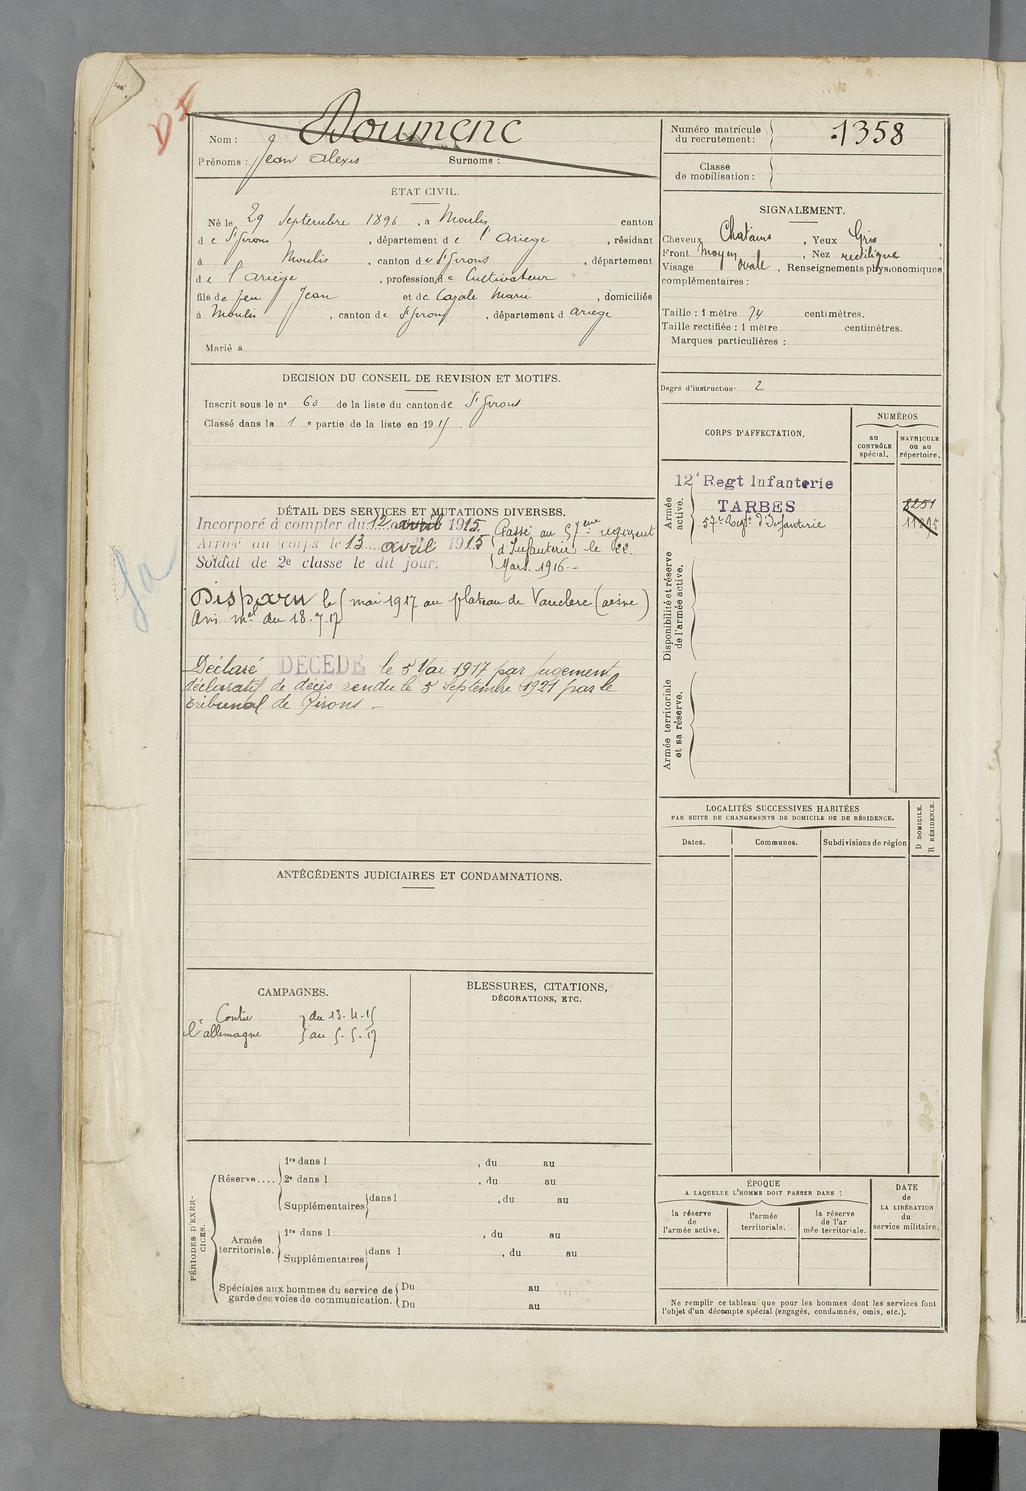 DF
Nom : Doumenc
Prénoms : Jean Alexis Surnoms :
Numéro matricule du recrutement : 1358
Classe de mobilisation :
ÉTAT CIVIL.
Né le 29 Septembre 1896, à Moulis canton
de St Girons, département de l'Ariège, résidant
à Moulis, canton de St Girons, département
de l'Ariège, profession de Cultivateur
fils de feu Jean et de Cazale Marie, domiciliés
à Moulis, canton de St Girons, département d Ariège
Marié à
SIGNALEMENT.
Cheveux Chatains, Yeux Gris,
Front moyen, Nez rectiligne,
Visage ovale, Renseignements physionomiques
complémentaires :
Taille : 1 mètre 74 centimètres.
Taille rectifiée : 1 mètre centimètres.
Marques particulières :
Degré d'instruction : 2
DECISION DU CONSEIL DE REVISION ET MOTIFS.
Inscrit sous le n° 60 de la liste du canton de St Girons
Classé dans la 1e partie de la liste en 1915.
CORPS D'AFFECTATION.
NUMÉROS
au CONTRÔLE spécial.
MATRICULE ou au répertoire.
Armée active.
12e Regt Infanterie
TARBES
57e Regt d'Infanterie
Disponibilité et réserve de l'armée active.
Armée territoriale et sa réserve.
DÉTAIL DES SERVICES ET MUTATIONS DIVERSES.
Incorporé à compter du 12 avril 1915
Arrivé au corps le 13 avril 1915
Soldat de 2e classe le dit jour.
Passé au 57ème régiment
d'Infanterie le 22
Mars 1916.-
Disparu le 5 mai 1917 au plateau de Vauclerc (aisne)
Avis mel du 18-7-17
Déclaré DECEDE le 5 Mai 1917 par jugement
déclaratif de décès rendu le 5 Septembre 1921 par le
tribunal de Girons -
LOCALITÉS SUCCESSIVES HABITÉES
PAR SUITE DE CHANGEMENTS DE DOMICILE OU DE RÉSIDENCE.
D DOMICILE.
R RÉSIDENCE.
Dates. Communes. Subdivisions de région
ANTÉCÉDENTS JUDICIAIRES ET CONDAMNATIONS.
CAMPAGNES.
Contre du 13-4-15
l'allemagne au 5-5-17
BLESSURES, CITATIONS,
DÉCORATIONS, ETC.
PÉRIODES D'EXERCICES.
Réserve....
1re dans l , du au
2e dans l , du au
Supplémentaires dans l , du au
Armée territoriale.
1re dans l , du au
Supplémentaires dans l , du au
Spéciales aux hommes du service de garde des voies de communication.
Du au
Du au
ÉPOQUE
A LAQUELLE L'HOMME DOIT PASSER DANS :
la réserve de l'armée active.
l'armée territoriale.
la réserve de l'armée territoriale.
DATE de LA LIBÉRATION du service militaire.
Ne remplir ce tableau que pour les hommes dont les services font
l'objet d'un décompte spécial (engagés, condamnés, omis, etc.).